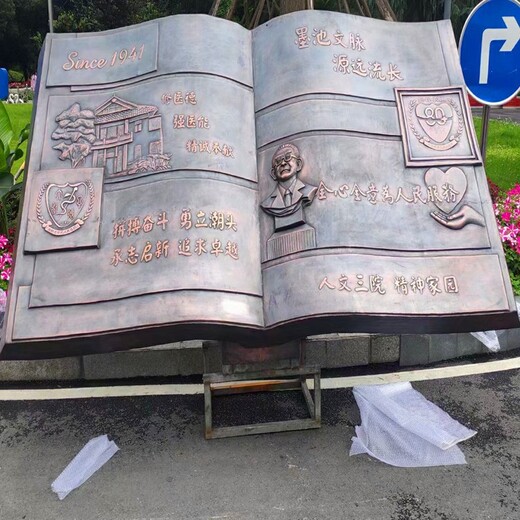 Since 1941
医德
强医能
精诚奉献
拼搏奋斗 勇立潮头
承志启新 追求卓越
墨池文脉
源远流长
全心全意為人民服務
人文三院 精神家园